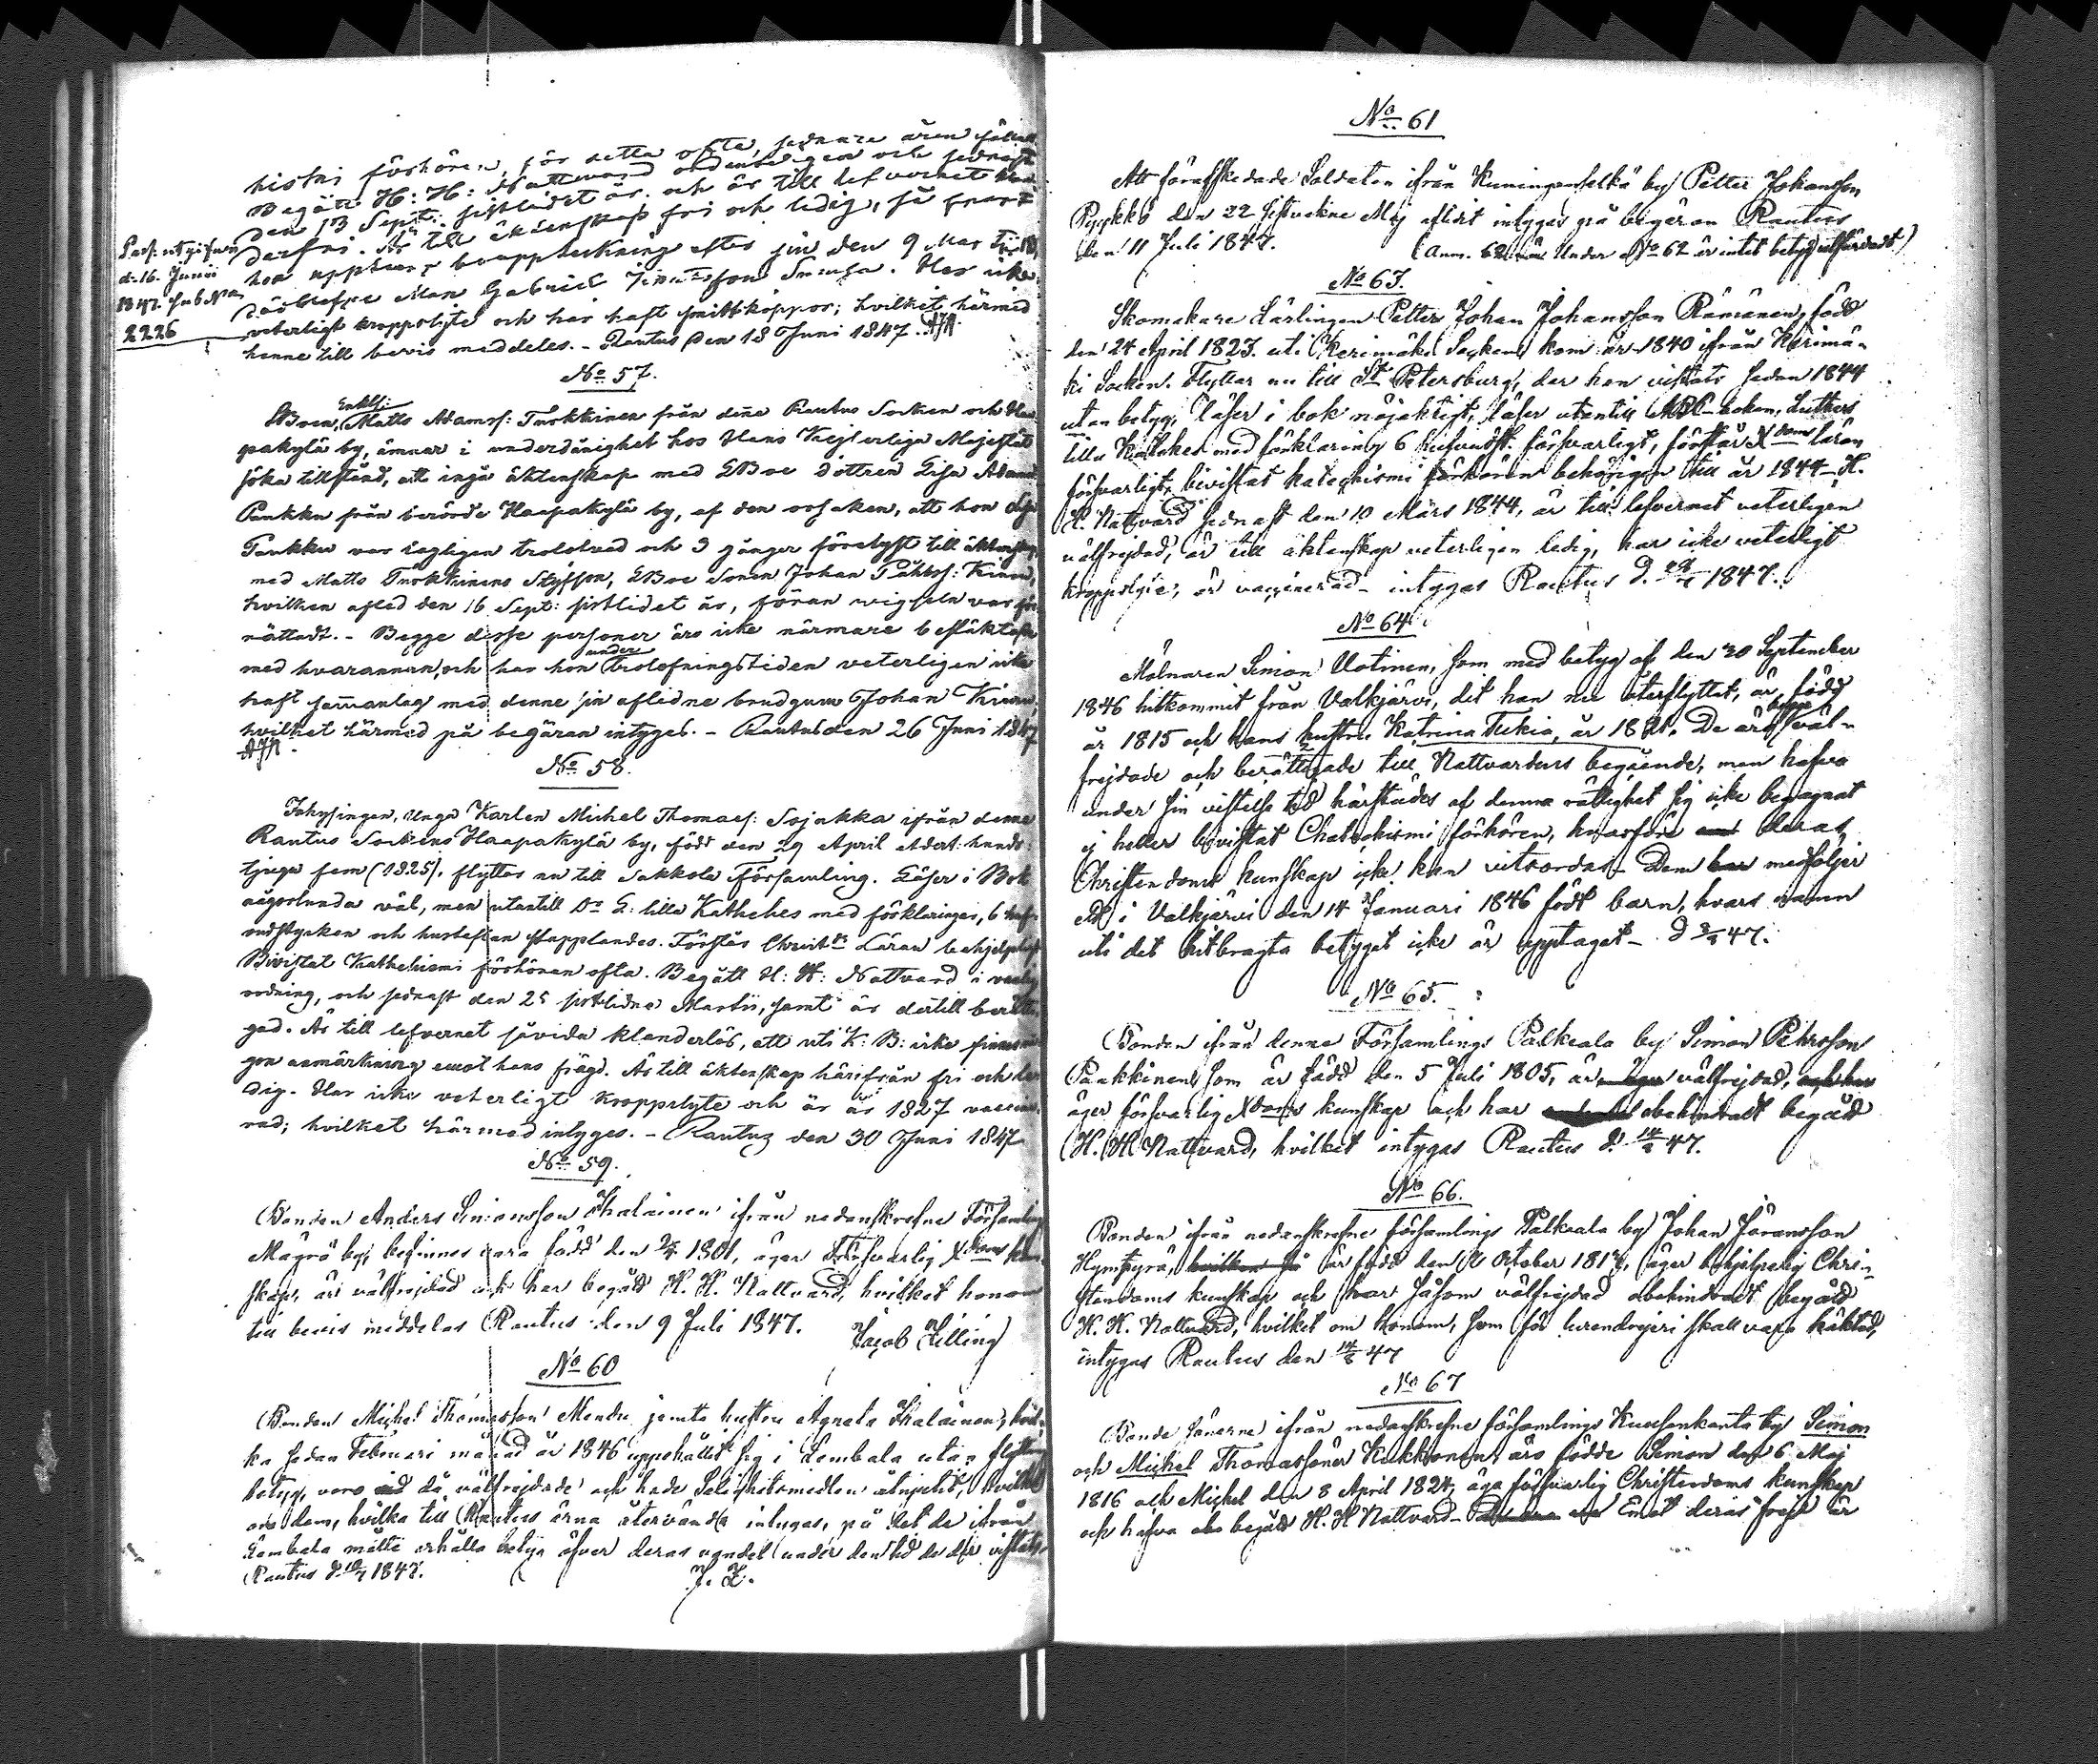 histri förhören, för detta ofta, sednare åren sällan
Begått H: H: Nattvard ordenteligen och sednast
den 13 Sept: sistlidet år och är till lefvernet
derfri. Är till äktenskap fri och ledig, så snart
hon uppter boupptekning efter sin den 9 Mar
Man Gabriel Simonsson. Har icke
veterligt kroppslyte och har haft smittkoppor; hvilket härmed
henne till bevis meddeles. - Rautus den 18 Juni 1847. AJA.
Pass utgifven
d. 16. Junii
1847. sub No
2226
No 57.
Enkl:
EBoen, Matts Adamss: Turkkinen från denne Rautus Socken och Haa
pakylä by, ämnar i underdånighet hos Hans Kejserliga Majestät
söka tillstånd, att ingå äktenskap med EBoe dottren Lisa Adamsd
Paukku från berörde Haapakylä by, af den orsaken, att hon Lisa
Paukku var lagligen trolofvad och 3 gånger förelyst till äktenskap
med Matts Turkkinens Styfson, EBoe Sonen Johan Påhlss: Kinn,
hvilken afled den 16 Sept: sistlidet år, föran wigseln var för
rättadt. - Begge desse personer äro icke närmare beslägtade
under
med hvarannan, och har hon trolofningstiden veterligen icke
haft sammanlag med denne sin aflidne brudgum Johan Kinn
hvilket härmed på begäran intyges. - Rautus den 26 Juni 1847
AJA.
No 58.
Inhysingen, Unga Karlen Michel Thomass: Sojakka ifrån denne
Rautus Sockens Haapakylä by, född den 29 April Adert: hundr
tjugu fem (1825), flyttar nu till Sakkola Församling. Läser i Bok
någorlunda väl, men utantill Dr L: lilla Katheches med förklaringar, 6 huf
vudstycken och hustaflan stapplandes. Förstår Christ: Läran behjelpligt
Bivistat Kathekismi förhören ofta. Begått H: H: Nattvard i vanlig
ordning, och sednast den 25 sistlidne Martii, samt är dertill berätti
gad. Är till lefvernet såvida klanderlös, att uti K: B: icke finnes nå
gon anmärkning emot hans frägd. Är till äktenskap härifrån fri och le
dig. Har icke veterligt kroppslyte och är år 1827 vaccine
rad; hvilket härmed intyges. - Rautus den 30 Juni 1847.
No 59.
Bonden Anders Simonsson Ihalainen ifrån nedanskrefne Församlings
Mägrä by, befinnes vara född den 1801, äger Försvarlig Xdoms kun
skap, är välfrejdad och har begått H. H. Nattvard, hvilket honom
till bevis meddelas Rautus den 9 Juli 1847. Jacob Zilling
No 60
Bonden Michel Thomasson Mendu jemte hustru Agneta Ihalainen, hvil
ka sedan Februari månad år 1846 uppehållit sig i Lembala utan flyttnings
betyg, voro då välfrejdade och hade Salighetsmedlen åtnjutit, hvilket
om dem, hvilka till Rautus ärna återvända intygas, på det de ifrån
Lembala måtte erhålla betyg öfver deras vandel under den tid de der vistats.
Rautus d. 1847. J. Z.
No 61
Att förafskedade Soldaten ifrån Kuninganselkä by Petter Johansson
Pykkö den 22 sistvekne Maj aflidit intygas på begäran Rautus
den 11 Juli 1847. (Anm. Under No 62 är intet betyg utfärdadt)
No 63.
Skomakare Lärlingen Petter Johan Johansson Rämänen, född
den 24 April 1823. uti Kerimäki Socken kom år 1840 ifrån Kerimä-
ki Socken. Flyttar nu till St Petersburg, der han vistats sedan 1844
utan betyg, läser i bok nöjaktigt, läser utantill ABC-boken, Luthers
lilla Kateches med förklaring 6 hufvudst. försvarligt, förstår Xdoms läran
försvarligt, bivistat katechismi förhören behörigen till år 1844 - H.
H. Nattvard sednast den 10 Mars 1844, är till lefvernet veterligen
välfrejdad, är till äktenskap veterligen ledig, har icke veterligt
kroppslyte, är vaccinerad - intygas Rautus d. 1847.
No 64
Mölnaren Simon Uotinen, som med betyg af den 20 September
1846 hitkommit från Valkjärvi, dit han nu återflyttat, är född
begge
år 1815 och hans hustru Katrina Tukia, år 1821. De äro väl-
frejdade och berättigade till Nattvardens begående, men hafva
under sin vistelse tid härstädes af denna rättighet sig icke begagnat
ej heller bivistat Chatechismi förhören, hvarföre deras
Christendoms kunskap icke kan vitsordas - Dem medföljer
ett i Valkjärvi den 14 Januari 1846 födt barn, hvars namn
uti det hitbragta betyget icke är upptaget - d 47.
No 65.
Bonden ifrån denne Församlings Palkeala by Simon Pehrsson
Paakkinen, som är född den 5 Juli 1805, är välfrejdad,
äger försvarlig Xdoms kunskap och har obehindradt begått
H. H. Nattvard, hvilket intygas Rautus d. 47.
No 66.
Bonden ifrån nedanskrefne församlings Palkeala by Johan Göransson
Hympyrä, är född den October 1817, äger behjelpelig Chri-
stendoms kunskap och har såsom välfrejdad obehindradt begått
H. H. Nattvard, hvilket om honom, som för lurendrejeri skall vara häktad,
intygas Rautus den 47
No 67
Bonde sönerne ifrån nedanskrefne församlings Kuusenkanta by Simon
och Michel Thomassöner Kukkonen, äro födde Simon den 6 Maj
1816 och Michel den 8 April 1824, äga försvarlig Christendoms kunskap
och hafva begått H. H Nattvard - Emot deras frejd är